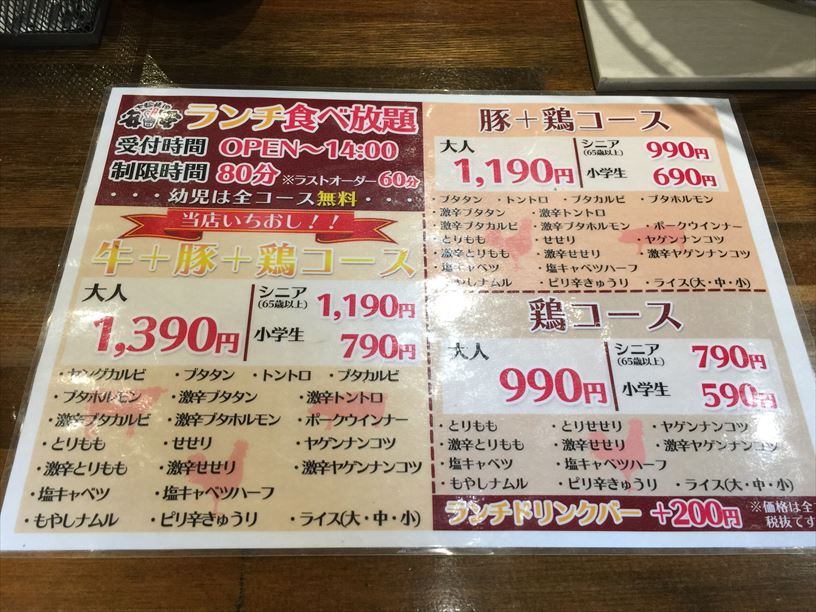 ランチ食べ放題
受付時間 OPEN～14:00
制限時間 80分 ※ラストオーダー60分
・・・幼児は全コース無料・・・
当店いちおし!!
牛＋豚＋鶏コース
大人 1,390円
シニア(65歳以上) 1,190円
小学生 790円
・ヤングカルビ ・ブタタン ・トントロ ・ブタカルビ
・ブタホルモン ・激辛ブタタン ・激辛トントロ
・激辛ブタカルビ ・激辛ブタホルモン ・ポークウインナー
・とりもも ・せせり ・ヤゲンナンコツ
・激辛とりもも ・激辛せせり ・激辛ヤゲンナンコツ
・塩キャベツ ・塩キャベツハーフ
・もやしナムル ・ピリ辛きゅうり ・ライス(大・中・小)
豚＋鶏コース
大人 1,190円
シニア(65歳以上) 990円
小学生 690円
・ブタタン ・トントロ ・ブタカルビ ・ブタホルモン
・激辛ブタタン ・激辛トントロ
・激辛ブタカルビ ・激辛ブタホルモン ・ポークウインナー
・とりもも ・せせり ・ヤゲンナンコツ
・激辛とりもも ・激辛せせり ・激辛ヤゲンナンコツ
・塩キャベツ ・塩キャベツハーフ
・もやしナムル ・ピリ辛きゅうり ・ライス(大・中・小)
鶏コース
大人 990円
シニア(65歳以上) 790円
小学生 590円
・とりもも ・とりせせり ・ヤゲンナンコツ
・激辛とりもも ・激辛せせり ・激辛ヤゲンナンコツ
・塩キャベツ ・塩キャベツハーフ
・もやしナムル ・ピリ辛きゅうり ・ライス(大・中・小)
ランチドリンクバー +200円
※価格は全
税抜です